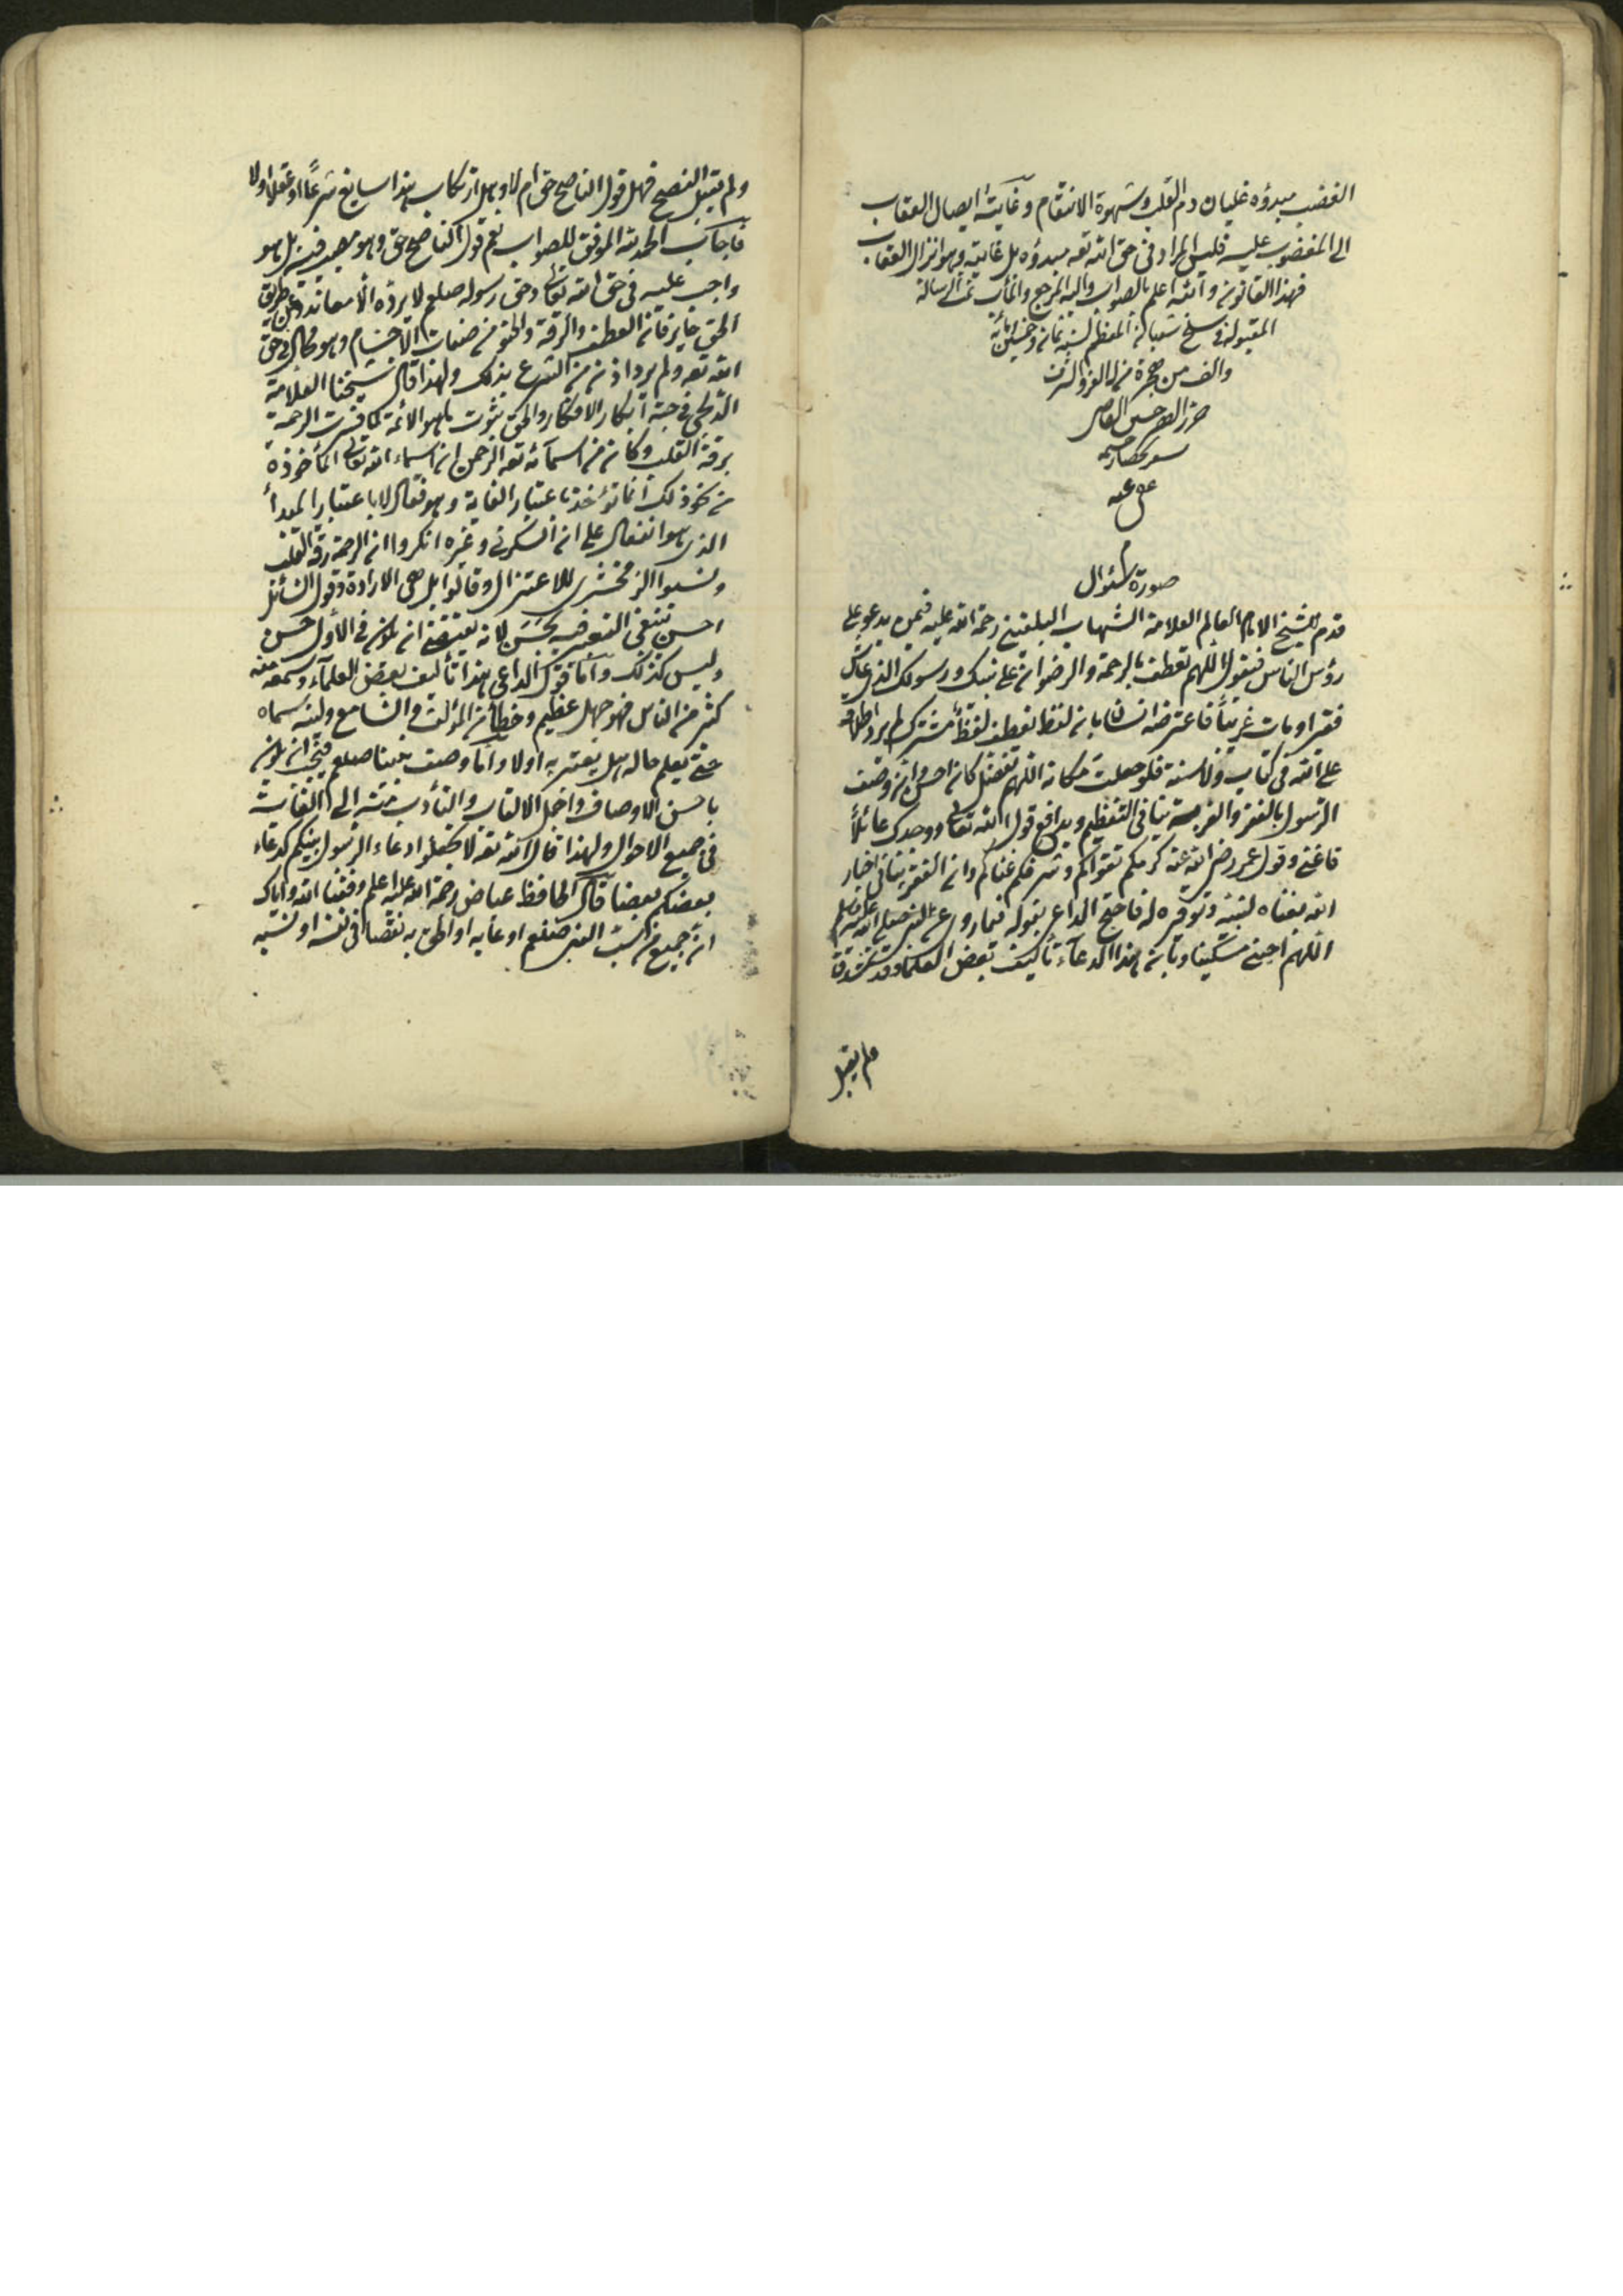 الغضب مبدؤه غليان دم القلب وشهوة الانتقام وغايته ايصال العقاب
الى المغضوب عليه فليس المراد فى حق الله تعه مبدؤه بل غايته وهو انزال العقاب
فهذا القانون والله اعلم بالصواب واليه المرجع والمأب تمت الرسالة
المقبولة فى سلخ شعبان المعظم لسنة ثمان وخمسين
والف من هجرة من له العز والشرف
حرره
عفى عنه
صورة سئوال
قدم للشيخ الامام العالم العلامة الشهاب البلقينى رحمة الله عليه فيمن يدعو على
رؤس الناس فيقول اللهم تعطف بالرحمة والرضوان على نبيك ورسولك الذى عاش
فقيرا ومات غريبا فاعترضه انسان بان لفظ تعطف لفظ مشترك لم يرد اطلاقه
على الله فى كتاب ولا سنة فلو جعلت مكانه اللهم تفضل كان احسن وان وصف
الرسول بالفقر والغربة ينافى التعظيم ويدافع قول الله تعالى ووجدك عائلاً
فاغنى وقول عمر رضى الله عنه كرمكم تقواكم وشرفكم غناكم وان الفقر ينافى اخبار
الله بغناه لنبيه وتوقيره له فاحتج الداعى بقوله فيما روى عن النبى صلى الله عليه وسلم
اللهم احينى مسكينا وبان هذا الدعاء تأليف بعض العلماء وقد
ولم يقبل
ولم يقبل النصح فهل قول الناصح حق ام لا وهل ارتكاب هذا سايغ شرعًا او عقلا اولا
فاجاب الحمد لله الموفق للصواب نعم قول الناصح حق وهو مصيب فيه بل هو
واجب عليه فى حق الله تعالى وحق رسوله صلعم لا يرده الا معاند وعن طريق
الحق جاير فان العطف والرقة والحنو من صفات الاجسام وهو محال فى حق
الله تعه ولم يرد اذن من الشرع بذلك ولهذا قال شيخنا العلامة
فى ابكار الافكار والحق ثبوت ما هو الائمة لما فسرت الرحمة
برقة القلب وكان من اسمائه تعه الرحمن ان اسماء الله تعالى المأخوذة
من نحو ذلك انما تؤخذ باعتبار الغاية وهو فعال لا باعتبار المبدأ
الذى هو انفعال على ان السكونى وغيره انكروا ان الرحمة رقة القلب
ونسبوا الزمخشرى للاعتزال وقالوا بل هى الارادة وقول السائل
احسن ينبغى التعبير بحسن لانه يقتضى ان يكون فى الاول حسن
وليس كذلك واما قول الداعى هذا تأليف بعض العلماء وسمعه منه
كثير من الناس فهو جهل عظيم وخطأ من المؤلف والسامع وليته سماه
حتى يعلم حاله هل يعتبر به اولا واما وصف نبينا صلعم فيجب ان يكون
باحسن الاوصاف واجمل الالقاب والتأدب منته الى الغايت
فى جميع الاحوال ولهذا قال الله تعه لا تجعلوا دعاء الرسول بينكم كدعاء
بعضكم بعضا قال الحافظ عياض رحمة الله عليه اعلم وفقنا الله واياك
ان جميع من سب النبى صلعم او عابه او الحق به نقصا فى نفسه او نسبه